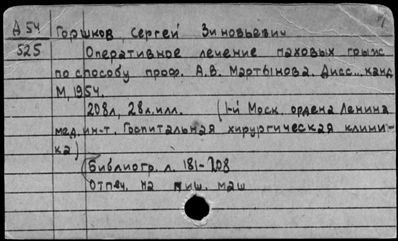 Д 54 Горшков, Сергей Зиновьевич
525 Оперативное лечение паховых грыж
по способу проф. А.В. Мартынова. Дисс... канд
М, 1954.
208л, 28л.илл. (1-й Моск. ордена Ленина
мед. ин-т. Госпитальная хирургическая клини-
ка)
(Библиогр. л. 181-208
Отпеч. на пиш. маш